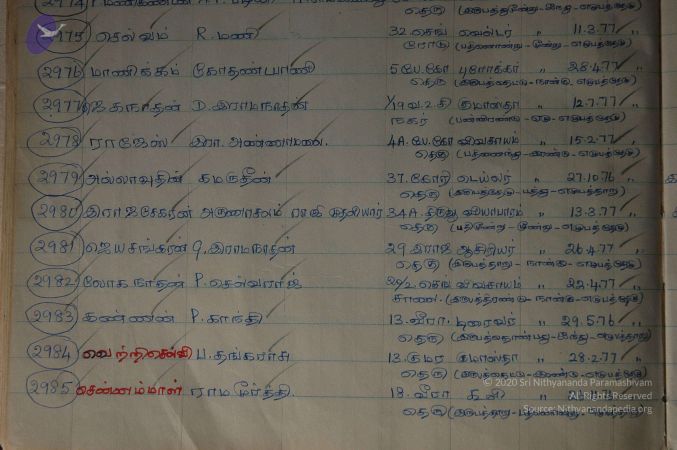 2975 செல்வம் R.மணி 32.செங் வெல்டர் " 11.3.77 "
ரோடு (பதினொன்று-மூன்று-எழுபத்தேழு)
2976 மாணிக்கம் கோதண்டபாணி 5 பே.கோ புரோக்கர் " 28.4.77 "
தெரு (இருபத்தெட்டு-நான்கு-எழுபத்தேழு)
2977 ஜெகநாதன் D.இராமநாதன் 1/19 வ.உ.சி குமாஸ்தா " 12.7.77 "
நகர் (பன்னிரண்டு-ஏழு-எழுபத்தேழு)
2978 ராஜேஸ் இரா.அண்ணாமலை. 4A.பே.கோ விவசாயம் " 15.2.77 "
தெரு (பதினைந்து-இரண்டு-எழுபத்தேழு)
2979 அல்லாவுதின் கமருதீன் 37.கோரி டெய்லர் " 27.10.76 "
தெரு (இருபத்தேழு-பத்து-எழுபத்தாறு)
2980 இராஜசேகரன் அருணாசலம் முதலியார் 34A.திருவூ வியாபாரம் " 13.3.77 "
தெரு (பதிமூன்று-மூன்று-எழுபத்தேழு)
2981 ஜெயசங்கரன் G.இராமநாதன் 29 இராஜ ஆசிரியர் " 26.4.77 "
தெரு (இருபத்தாறு-நான்கு-எழுபத்தேழு)
2982 லோகநாதன் P.செல்வராஜ் செங் விவசாயம் " 22.4.77 "
சாலை. (இருபத்திரண்டு-நான்கு-எழுபத்தேழு)
2983 கண்ணன் P.காந்தி 13.வீரா. டிரைவர் " 29.5.76 "
தெரு (இருபத்தொன்பது-ஐந்து-எழுபத்தாறு)
2984 வெற்றிசெல்வி ப.தங்கராசு 13.குமர குமாஸ்தா " 28.2.77 "
தெரு (இருபத்தெட்டு-இரண்டு-எழுபத்தேழு)
2985 சென்னம்மாள் ராமமூர்த்தி 18.வீரா கூலி "
தெரு
© 2020 Sri Nithyananda Paramashivam
All Rights Reserved
Source: Nithyanandapedia.org